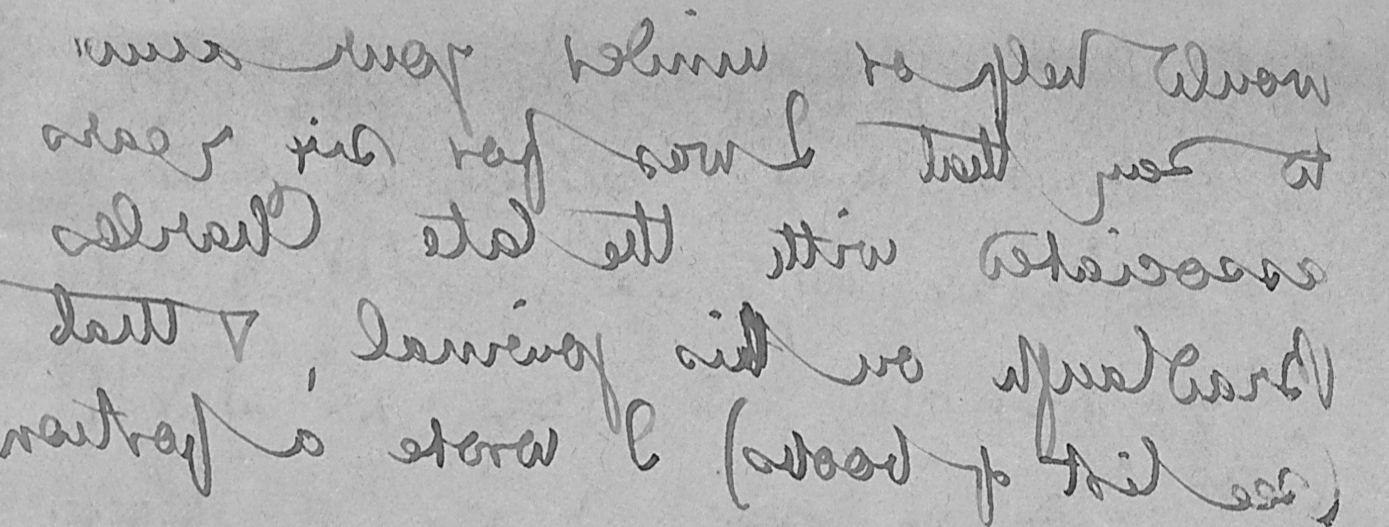 would help or your aim"
to say that I was for six years
associated with the late Charles
Bradlaugh on his journal, & that
(see list of books) I wrote a portion